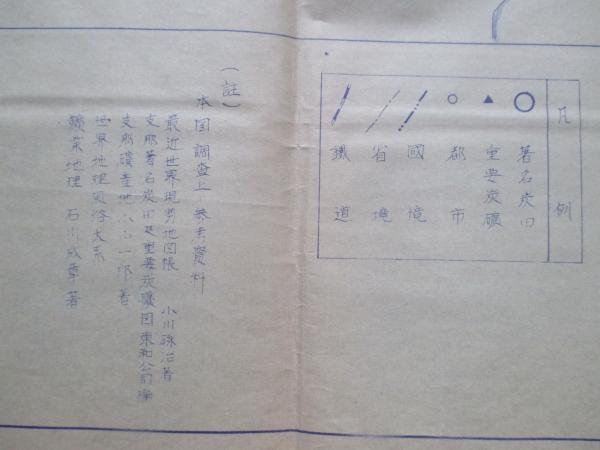 凡例
著名炭田
重要炭礦
都市
國境
省境
鐵道
(註)
本図調査上ノ参考資料
最近世界現勢地図帳 小川琢治著
支那著名炭田及重要炭礦図 東和公司編
支那礦産 小山一郎著
世界地理風俗大系
鑛業地理 石川成章著